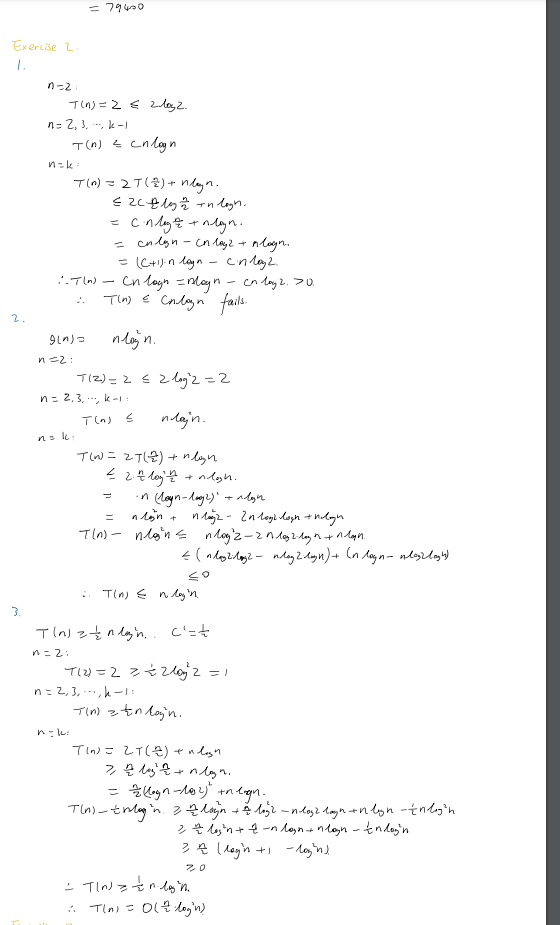 = 79400
Exercise 2.
1.
n=2:
T(n) = 2 ≤ 2log2.
n= 2, 3, ..., k-1
T(n) ≤ cnlogn
n=k:
T(n) = 2T(n/2) + nlogn.
≤ 2C n/2 log n/2 + nlogn.
= C·nlog n/2 + nlogn.
= cnlogn - cnlog2 + nlogn.
= (C+1)·nlogn - cnlog2.
∴ T(n) - Cnlogn = nlogn - cnlog2. >0.
∴ T(n) ≤ Cnlogn fails.
2.
g(n) = nlog²n.
n=2:
T(2) = 2 ≤ 2log²2 = 2
n = 2,3, ..., k-1:
T(n) ≤ nlog²n.
n = k:
T(n) = 2T(n/2) + nlogn
≤ 2·n/2 log² n/2 + nlogn.
= ·n (logn-log2)² + nlogn
= nlog²n + nlog²2 - 2nlog2logn + nlogn
T(n) - nlog²n ≤ nlog²2 - 2nlog2logn + nlogn
≤ (nlog2log2 - nlog2logn) + (nlogn - nlog2logn)
≤0
∴ T(n) ≤ nlog²n
3.
T(n) ≥ 1/2 nlog²n. C'=1/2
n=2:
T(2) = 2 ≥ 1/2 2log²2 = 1
n = 2,3, ..., k-1:
T(n) ≥ 1/2 nlog²n.
n = k:
T(n) = 2T(n/2) + nlogn
≥ n/2 log² n/2 + nlogn.
= n/2 (logn-log2)² + nlogn.
T(n) - 1/2 nlog²n ≥ n/2 log²n + n/2 log²2 - nlog2logn + nlogn - 1/2 nlog²n
≥ n/2 log²n + n/2 - nlogn + nlogn - 1/2 nlog²n
≥ n/2 (log²n +1 - log²n)
≥0
∴ T(n) ≥ 1/2 nlog²n.
∴ T(n) = O(n/2 log²n)